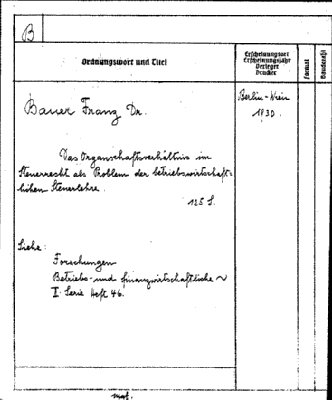 B
Ordnungswort und Titel
Erscheinungsort
Erscheinungsjahr
Verleger
Drucker
Format
Bandezahl
Bauer Franz Dr.
Berlin-Wien
1930.
Das Organschaftsverhältnis im
Steuerrecht als Problem der betriebswirtschaft-
lichen Steuerlehre.
128 S.
Siehe:
Forschungen
Betriebs- und finanzwirtschaftliche ~
II. Serie Heft 46.